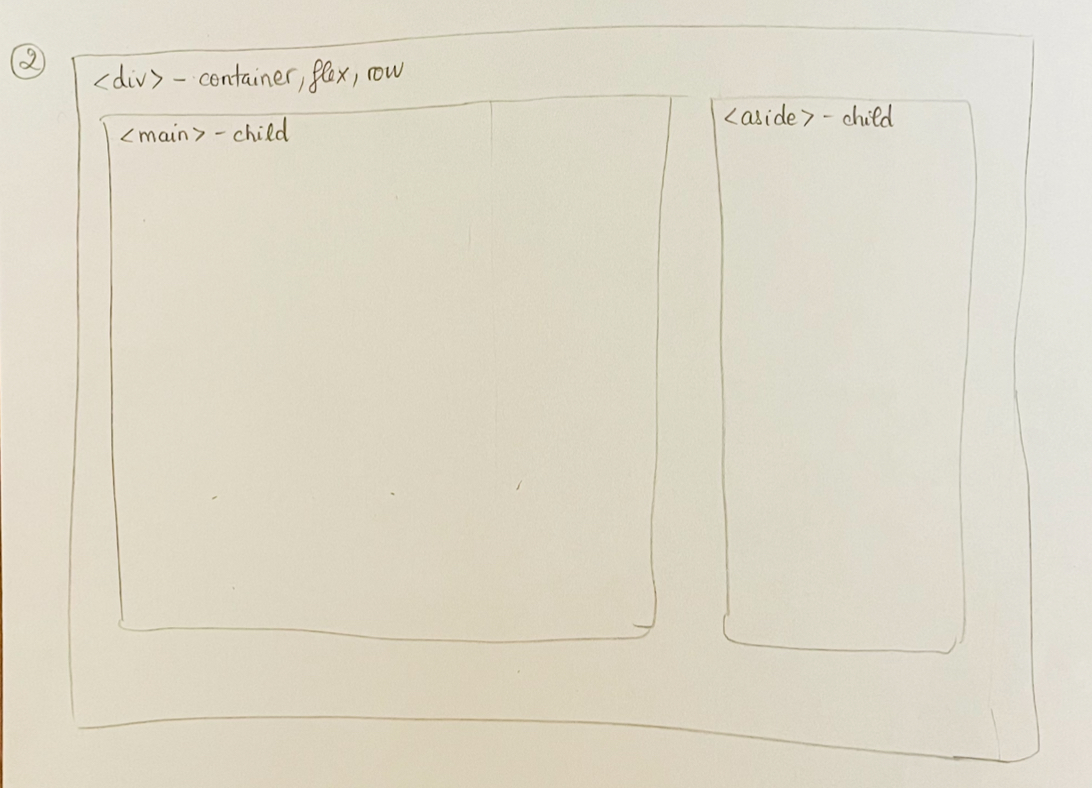 2
<div> - container, flex, row
<main> - child
<aside> - child